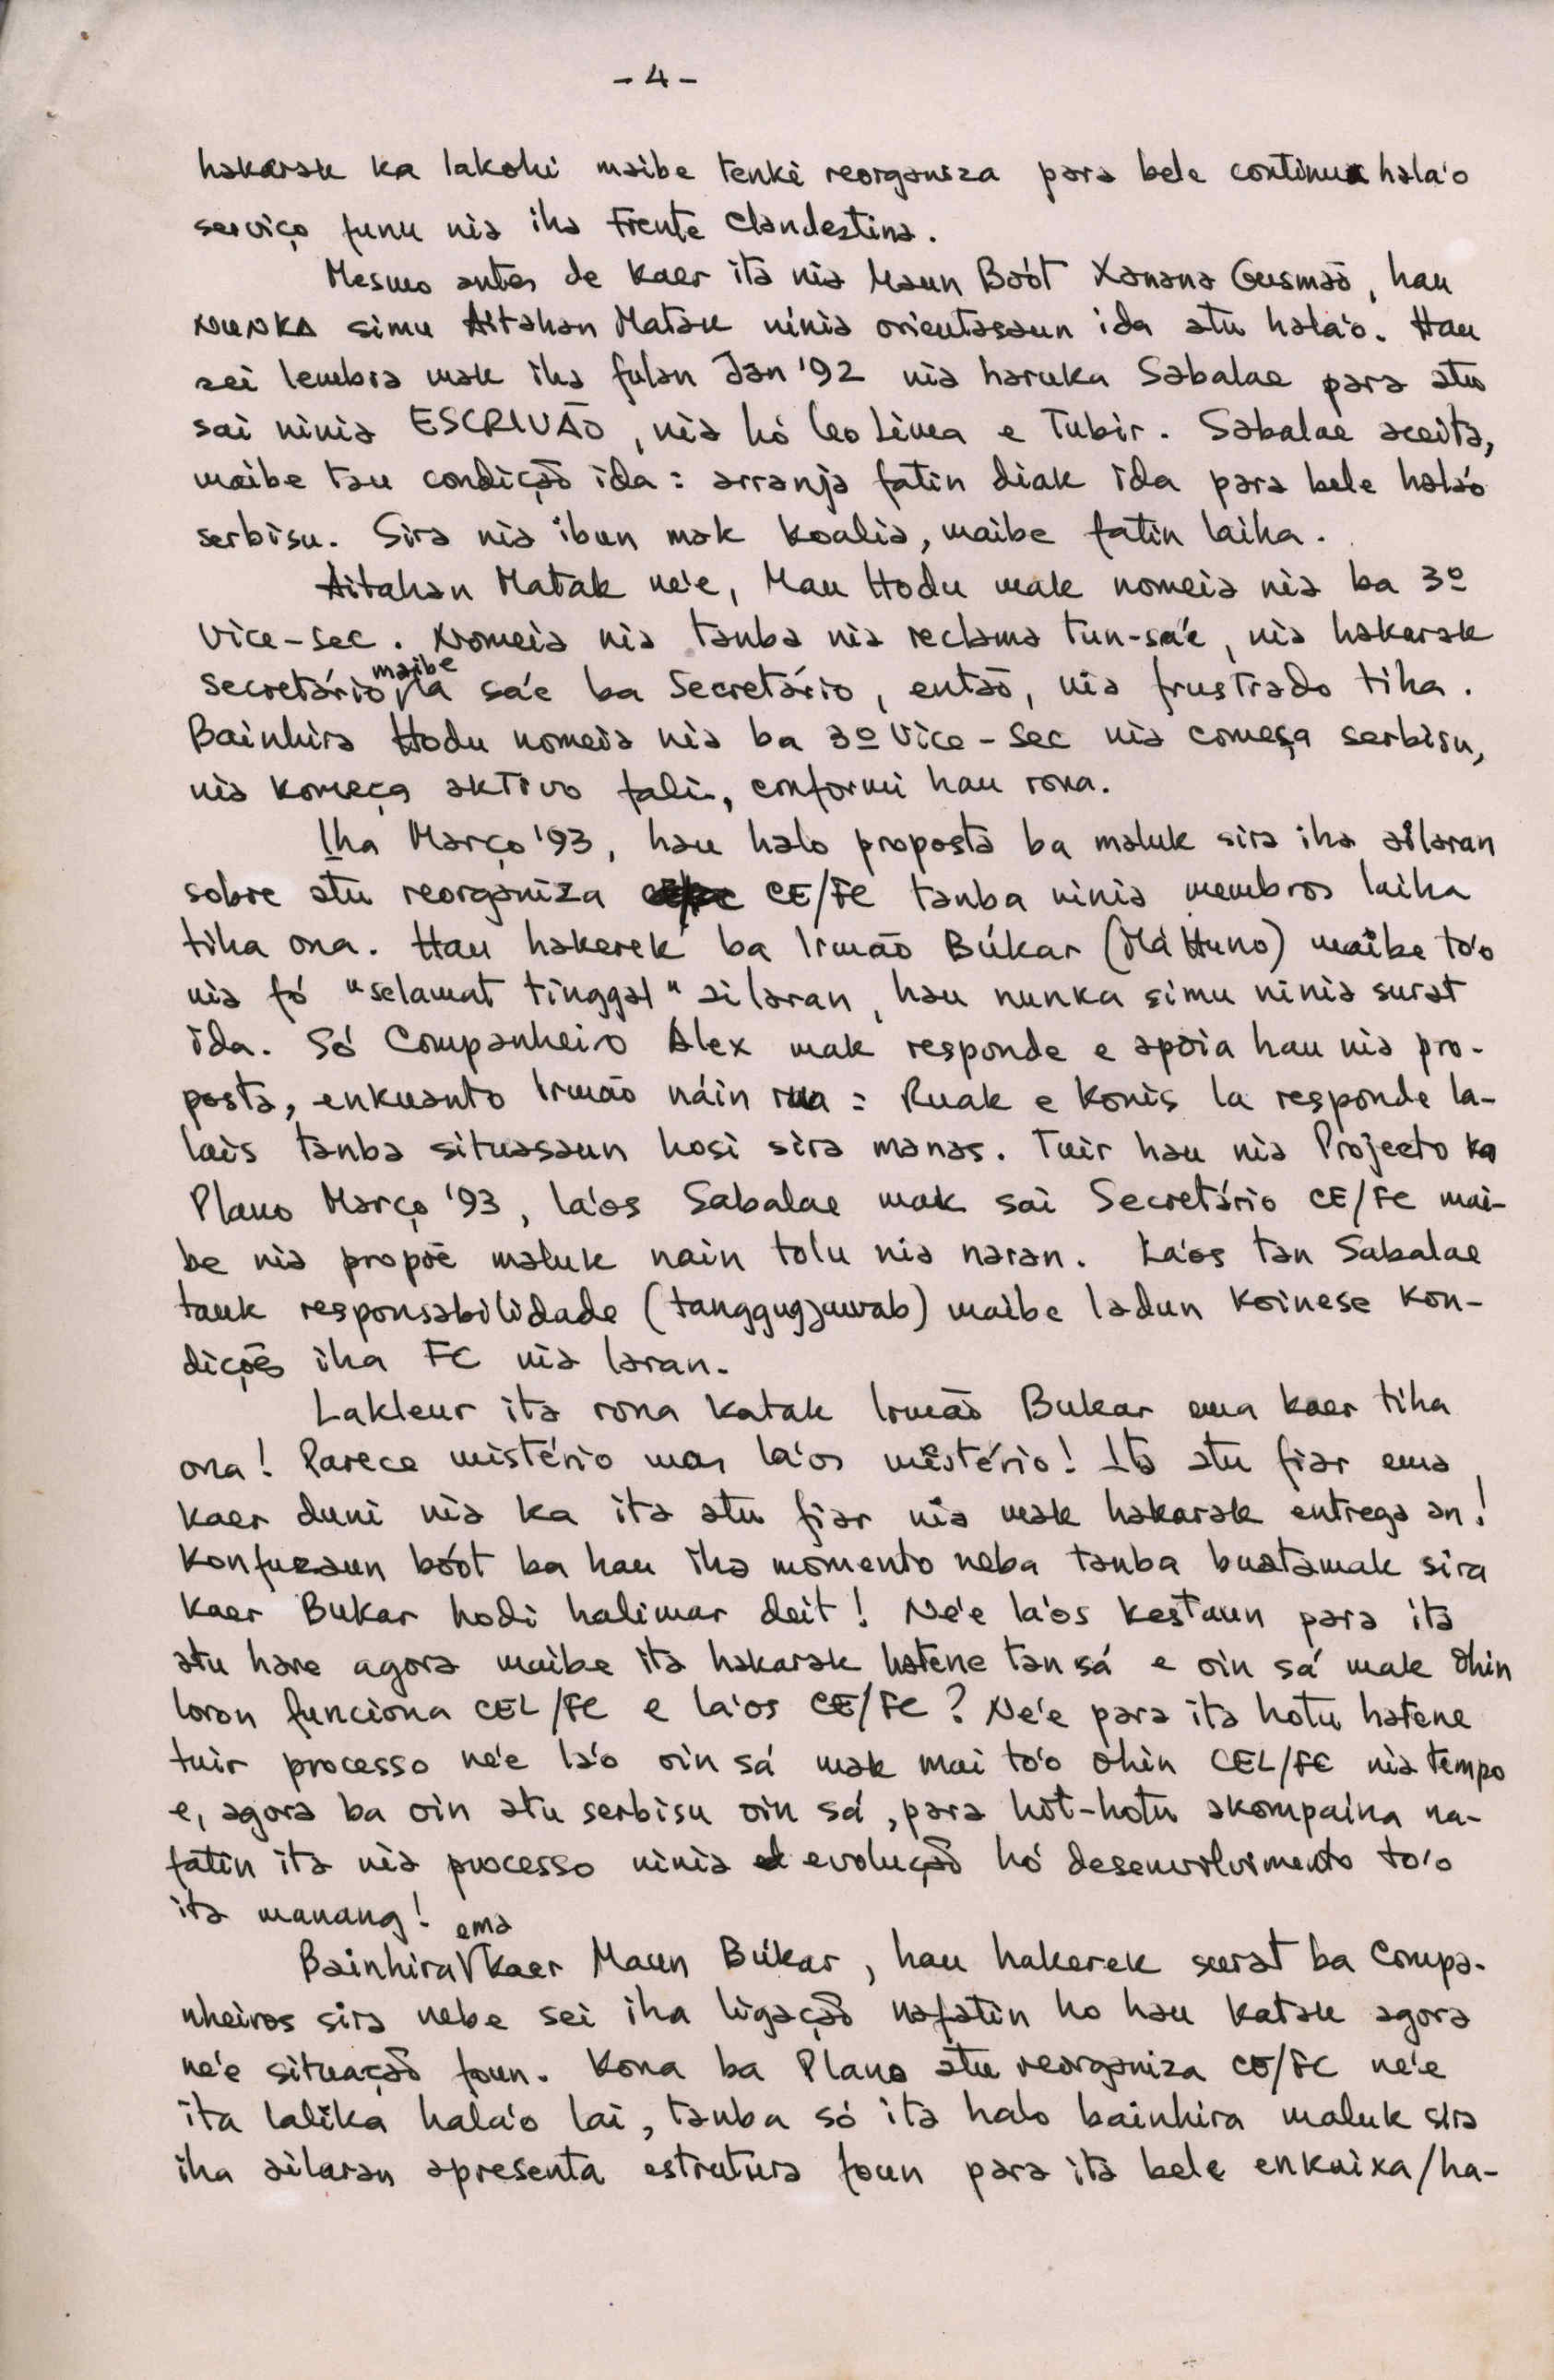 - 4 -
hakarak ka lakohi maibe tenke reorganiza para bele continua hala'o
serviço funu nia iha Frente Clandestina.
Mesmo antes de kaer ita nia Maun Boót Xanana Gusmão, hau
NUNKA simu Aitahan Matak ninia orientasaun ida atu hala'o. Hau
sei lembra mak iha fulan Jan '92 nia haruka Sabalae para atu
sai ninia ESCRIVÃO, nia hó Leo Lima e Tubir. Sabalae aceita,
maibe tau condição ida: arranja fatin diak ida para bele hala'o
serbisu. Sira nia ibun mak koalia, maibe fatin laiha.
Aitahan Matak ne'e, Mau Hodu mak nomeia nia ba 3º
Vice-sec. Nomeia nia tanba nia reclama tun-sa'e, nia hakarak
secretário, maibe la sa'e ba Secretário, então, nia frustrado tiha.
Bainhira Hodu nomeia nia ba 3º Vice-Sec nia começa serbisu,
nia komeça aktivo fali, conformi hau rona.
Iha Março '93, hau halo proposta ba maluk sira iha ailaran
sobre atu reorganiza CE/FC tanba ninia membros laiha
tiha ona. Hau hakerek ba Irmão Búkar (Má Huno) maibe to'o
nia fó "selamat tinggal" ailaran, hau nunka simu ninia surat
ida. Só Companheiro Alex mak responde e apoia hau nia pro-
posta, enkuanto Irmão náin rua: Ruak e Konis la responde la-
lais tanba situasaun hosi sira manas. Tuir hau nia Projecto ka
Plano Março '93, la'os Sabalae mak sai Secretário CE/FC mai-
be nia propõe maluk nain tolu nia naran. La'os tan Sabalae
tauk responsabilidade (tanggugjawab) maibe ladun koinese kon-
dições iha FC nia laran.
Lakleur ita rona katak Irmão Bukar ema kaer tiha
ona! Parece mistério mas la'os mistério! Ita atu fiar ema
kaer duni nia ka ita atu fiar nia mak hakarak entrega an!
Konfuzaun boót ba hau iha momento neba tanba buatamak sira
kaer Bukar hodi halimar deit! Ne'e la'os kestaun para ita
atu hare agora maibe ita hakarak hatene tan sá e oin sá mak ohin
loron funciona CEL/FC e la'os CE/FC? Ne'e para ita hotu hatene
tuir processo ne'e la'o oin sá mak mai to'o ohin CEL/FC nia tempo
e, agora ba oin atu serbisu oin sá, para hot-hotu akompaina na-
fatin ita nia processo ninia evolução hó desenvolvimento to'o
ita manang!
Bainhira ema kaer Maun Búkar, hau hakerek surat ba Compa-
nheiros sira nebe sei iha ligação nafatin ho hau katak agora
ne'e situação foun. Kona ba Plano atu reorganiza CE/FC ne'e
ita lalika hala'o lai, tanba só ita halo bainhira maluk sira
iha ailaran apresenta estrutura foun para ita bele enkaixa/ha-